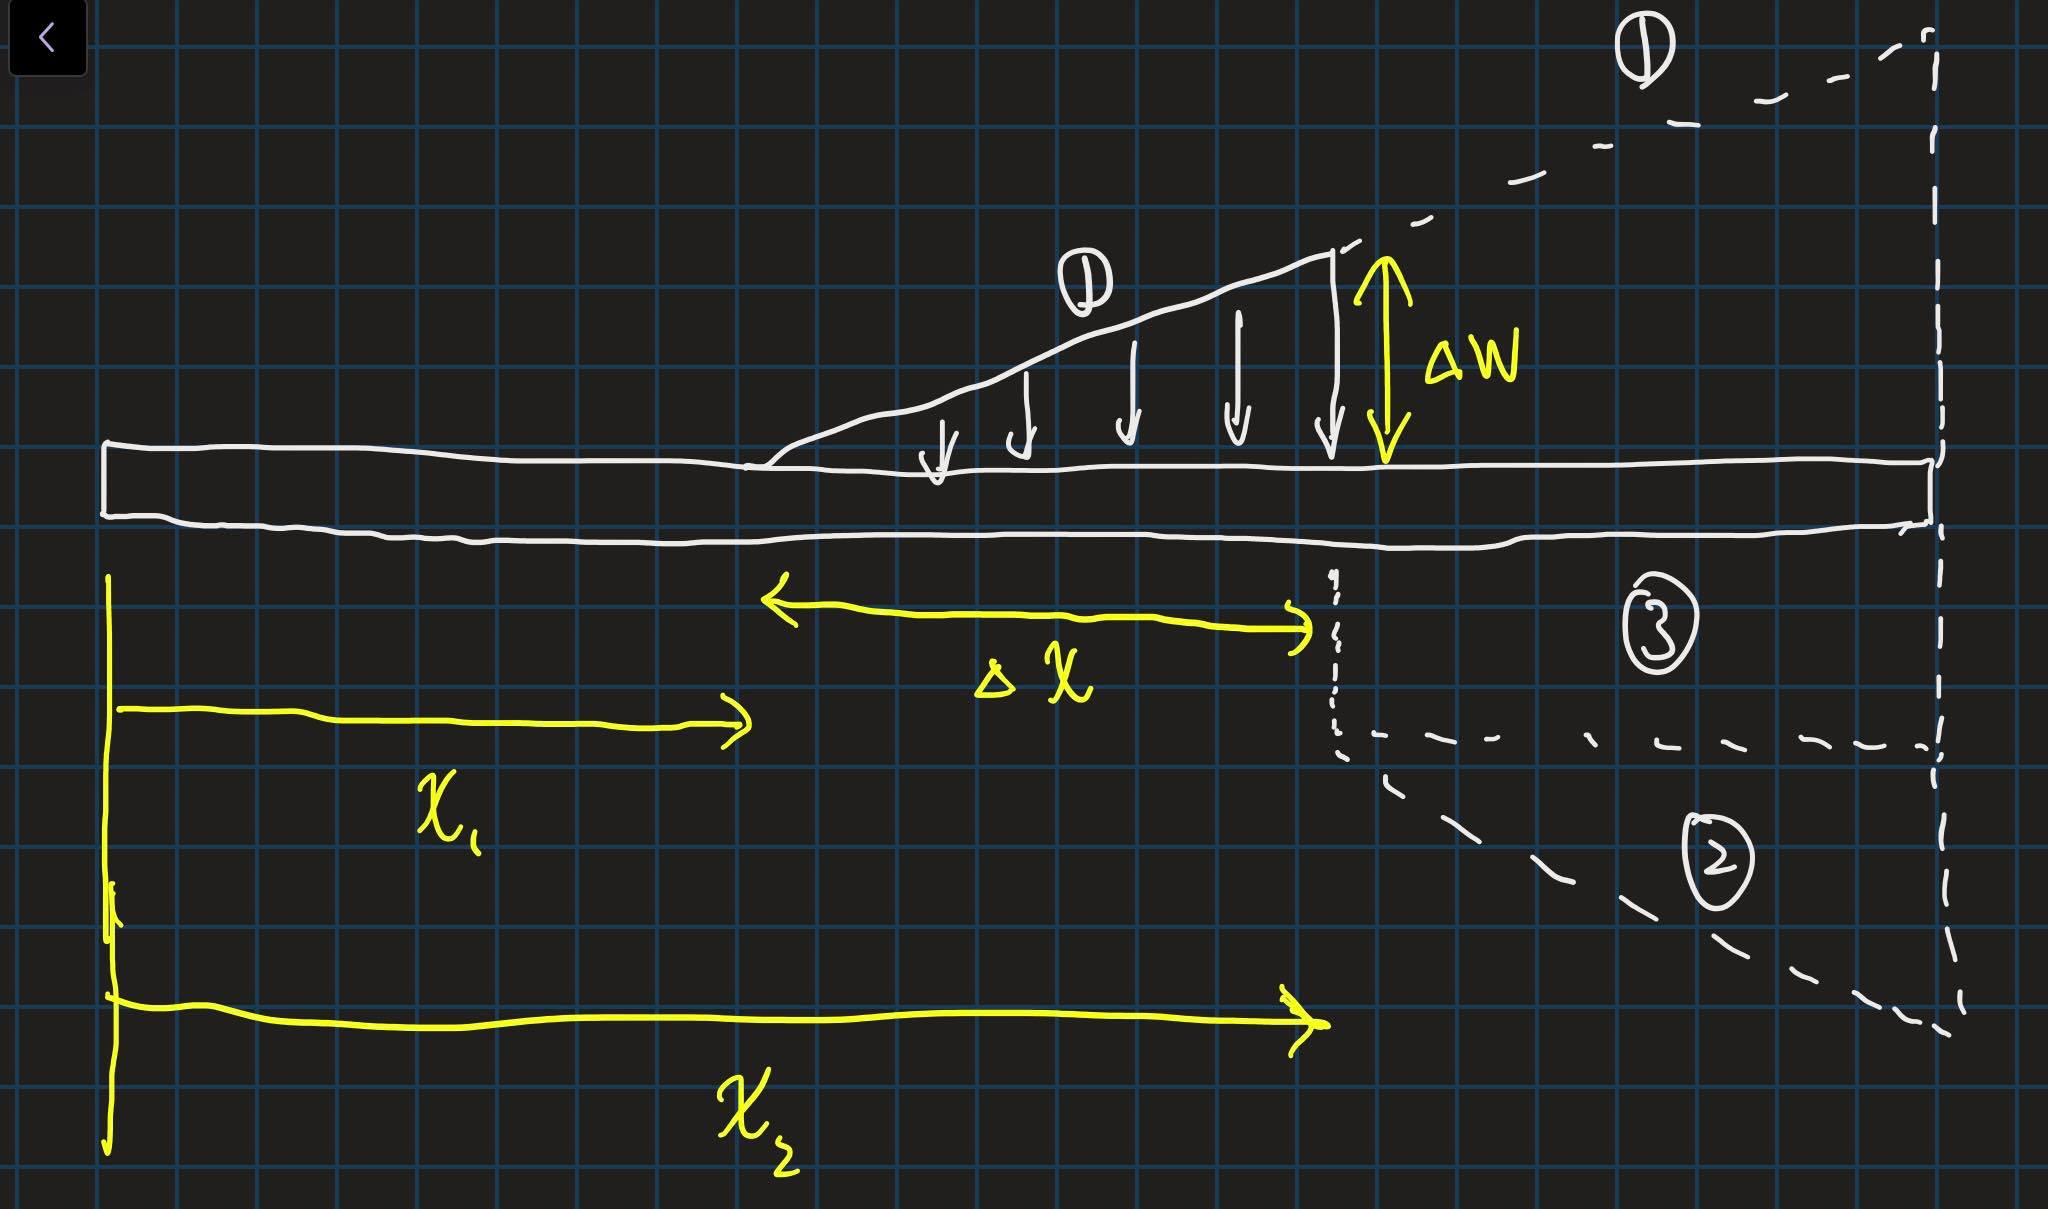 ①
①
ΔW
③
Δx
x₁
②
x₂